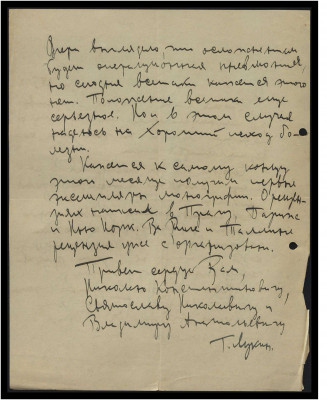 Вчера выглядело что осложнения
будет операционная пневмония,
но сегодня всетаки кажется этого
нет. Положение всетаки еще
серьезное. Но и в этом случае
надеюсь на хороший исход бо-
лезни.
Кажется к самому концу
этого месяца получим первые
экземпляры монографии. О рецен-
зиях написал в Прагу, Париж
и Нью Йорк. В Риге и Таллине
рецензии уже сорганизованы.
Привет сердца Вам,
Николаю Константиновичу,
Святославу Николаевичу и
Владимиру Анатольевичу
Г. Лукин.